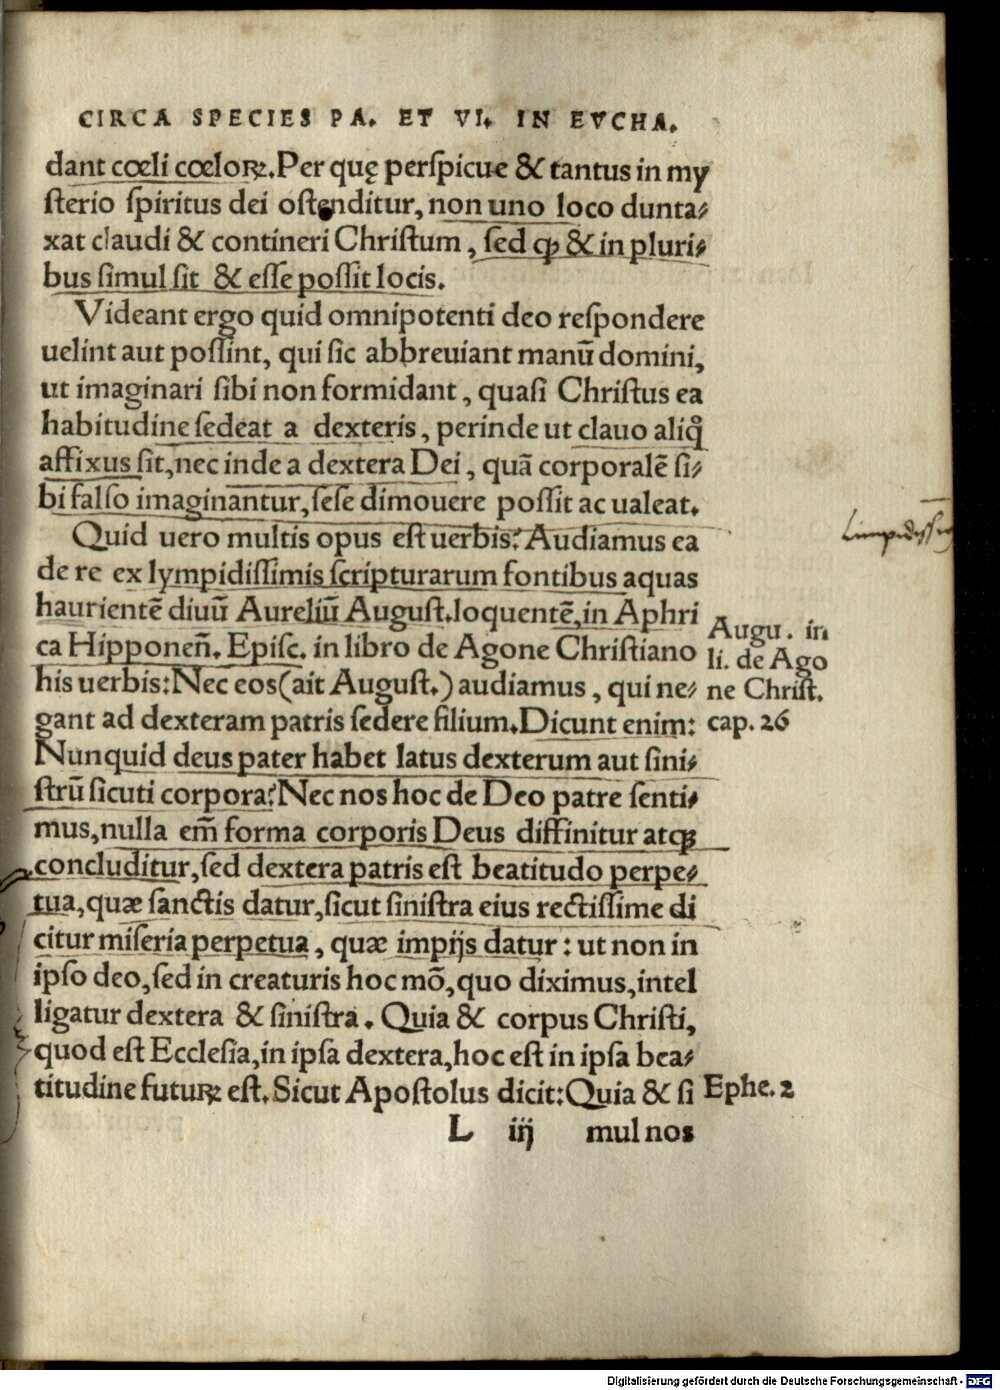 CIRCA SPECIES PA. ET VI. IN EVCHA.
dant cœli cœloꝝ. Per quę perſpicue & tantus in my
ſterio ſpiritus dei oſtenditur, non uno loco dunta⸗
xat claudi & contineri Chriſtum, ſed ꝙ & in pluri⸗
bus ſimul ſit & eſſe poſſit locis.
Videant ergo quid omnipotenti deo reſpondere
uelint aut poſſint, qui ſic abbreuiant manū domini,
ut imaginari ſibi non formidant, quaſi Chriſtus ea
habitudine ſedeat a dexteris, perinde ut clauo aliq̊
affixus ſit, nec inde a dextera Dei, quā corporalē ſi⸗
bi falſo imaginantur, ſeſe dimouere poſſit ac ualeat.
Quid uero multis opus eſt uerbis? Audiamus ea
de re ex lympidiſſimis ſcripturarum fontibus aquas
haurientē diuū Aureliū Auguſt. loquentē, in Aphri
ca Hipponeñ. Epiſc. in libro de Agone Chriſtiano
his uerbis: Nec eos (ait Auguſt.) audiamus, qui ne⸗
gant ad dexteram patris ſedere filium. Dicunt enim:
Nunquid deus pater habet latus dexterum aut ſini⸗
ſtrū ſicuti corpora? Nec nos hoc de Deo patre ſenti⸗
mus, nulla em̄ forma corporis Deus diffinitur atqꝫ
concluditur, ſed dextera patris eſt beatitudo perpe⸗
tua, quæ ſanctis datur, ſicut ſiniſtra eius rectiſſime di
citur miſeria perpetua, quæ impijs datur: ut non in
ipſo deo, ſed in creaturis hoc mō, quo diximus, intel
ligatur dextera & ſiniſtra. Quia & corpus Chriſti,
quod eſt Eccleſia, in ipſa dextera, hoc eſt in ipſa bea⸗
titudine futuꝝ eſt. Sicut Apoſtolus dicit: Quia & ſi
L iij mul nos
Augu. in
li. de Ago
ne Chriſt.
cap. 26
Ephe. 2
Digitalisierung gefördert durch die Deutsche Forschungsgemeinschaft - DFG